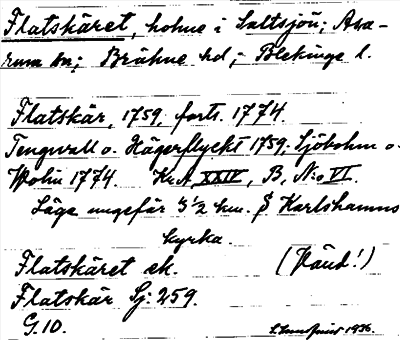 Flatskäret, holme i Saltsjön; Asa-
rum sn; Bräkne hd; Blekinge l.
Flatskär, 1759 forts. 1774.
Tengwall o. Hägerflyckt 1759; Sjöbohm o.
Wolin 1774. Kr.A, XXIV, B, N:o VI.
Läge ungefär 3 1/2 km. S Karlshamns
kyrka.
Flatskäret ek. (Vänd!)
Flatskär Sj: 259.
G. 10. 1936.